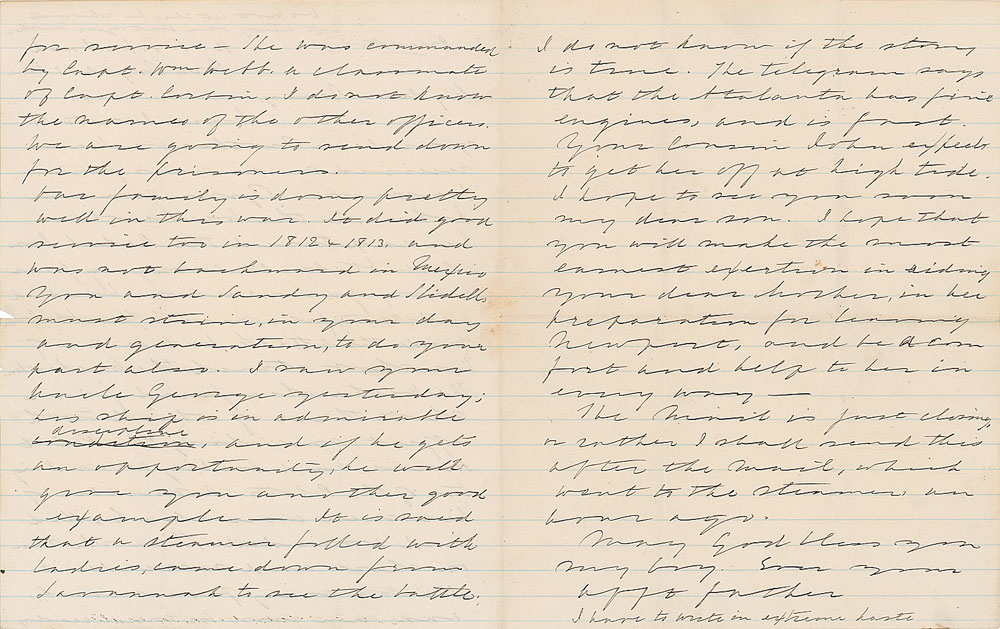 for service – She was commanded
by Capt. Wm Webb. a classmate
of Capt. Corbin. I do not know
the names of the other officers.
We are going to send down
for the prisoners.
Our family is doing pretty
well in this war. It did good
service too in 1812 & 1813. and
was not backward in Mexico
You and Sandy and Slidell,
must strive, in your day
and generation, to do your
part also. I saw your
Uncle George yesterday;
his ship is in admirable
discipline
condition, and if he gets
an opportunity, he will
give you another good
example — It is said
that a steamer filled with
ladies, came down from
Savannah to see the battle.
I do not know if the story
is true. The telegram says
that the Atalanta has fine
engines, and is fast.
Your Cousin John expects
to get her off at high tide.
I hope to see you soon
my dear son. I hope that
you will make the most
earnest exertion in aiding
your dear Mother, in her
preparation for leaving
Newport, and be a com
fort and help to her in
every way —
The Mail is just closing,
or rather I shall send this
after the mail, which
went to the steamer an
hour ago.
May God bless you
my boy. Ever your
afft father
I have to write in extreme haste